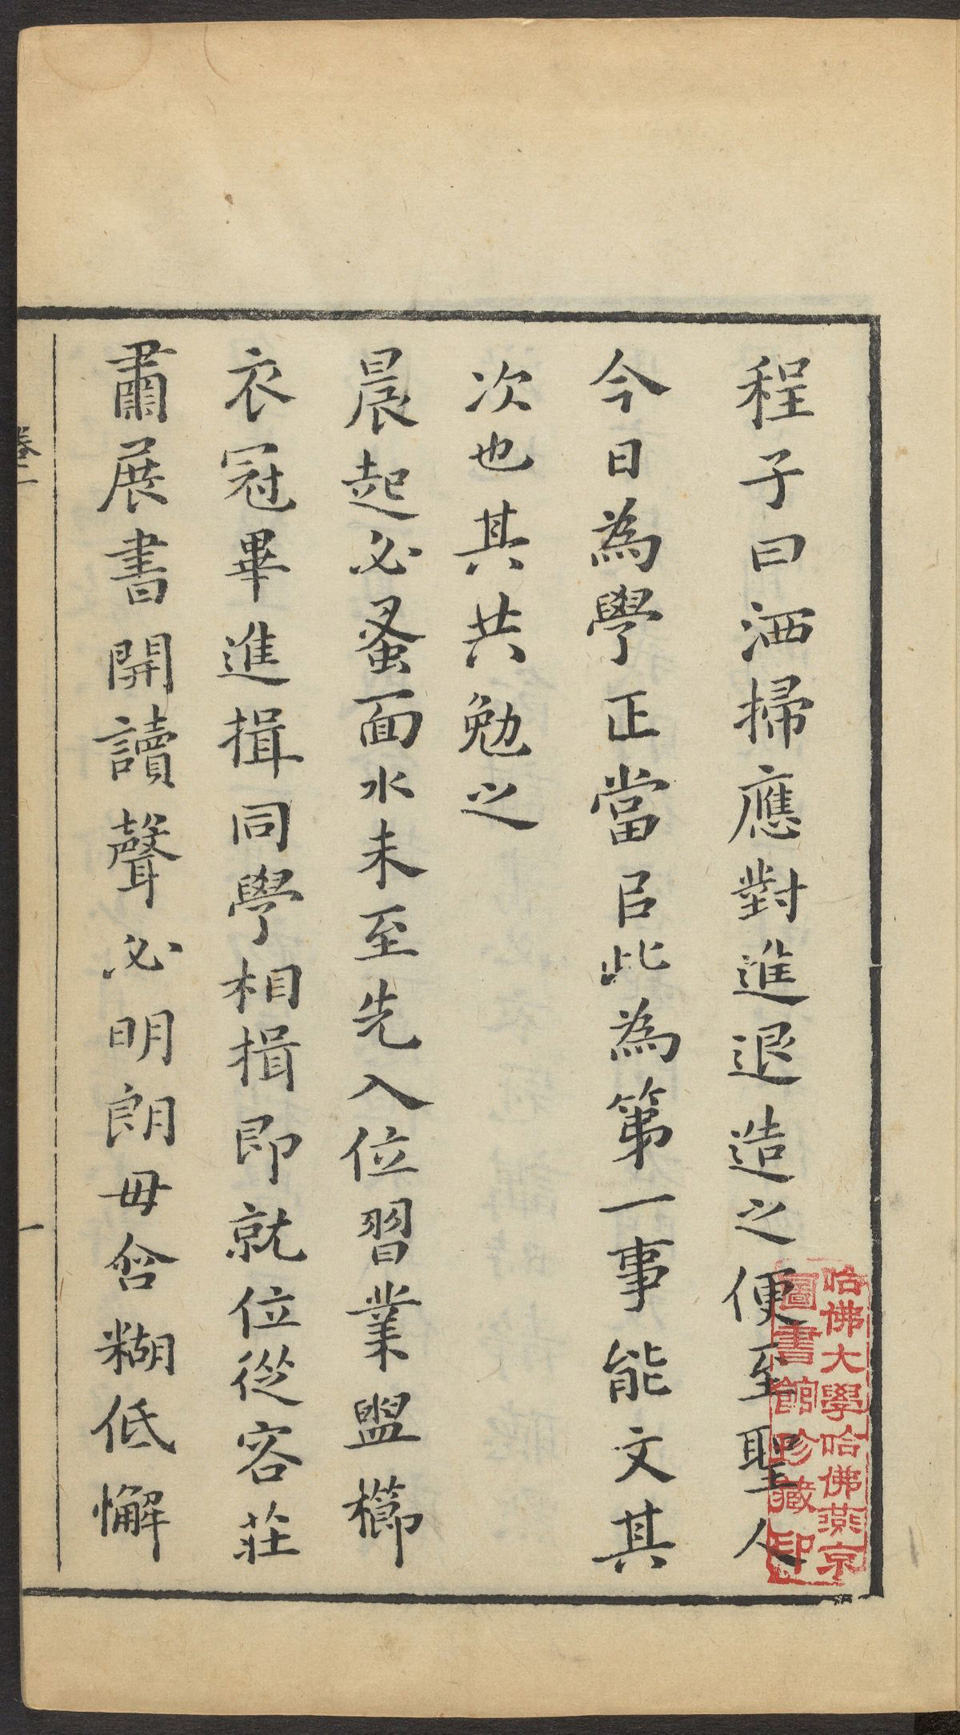 程子曰洒掃應對進退造之便至聖人
今日為學正當㠯此為第一事能文其
次也其共勉之
晨起必蚤面水未至先入位習業盥櫛
衣冠畢進揖同學相揖即就位從容莊
肅展書開讀聲必明朗毋含糊低懈
卷二
一
哈佛大學哈佛燕京
圖書館珍藏印